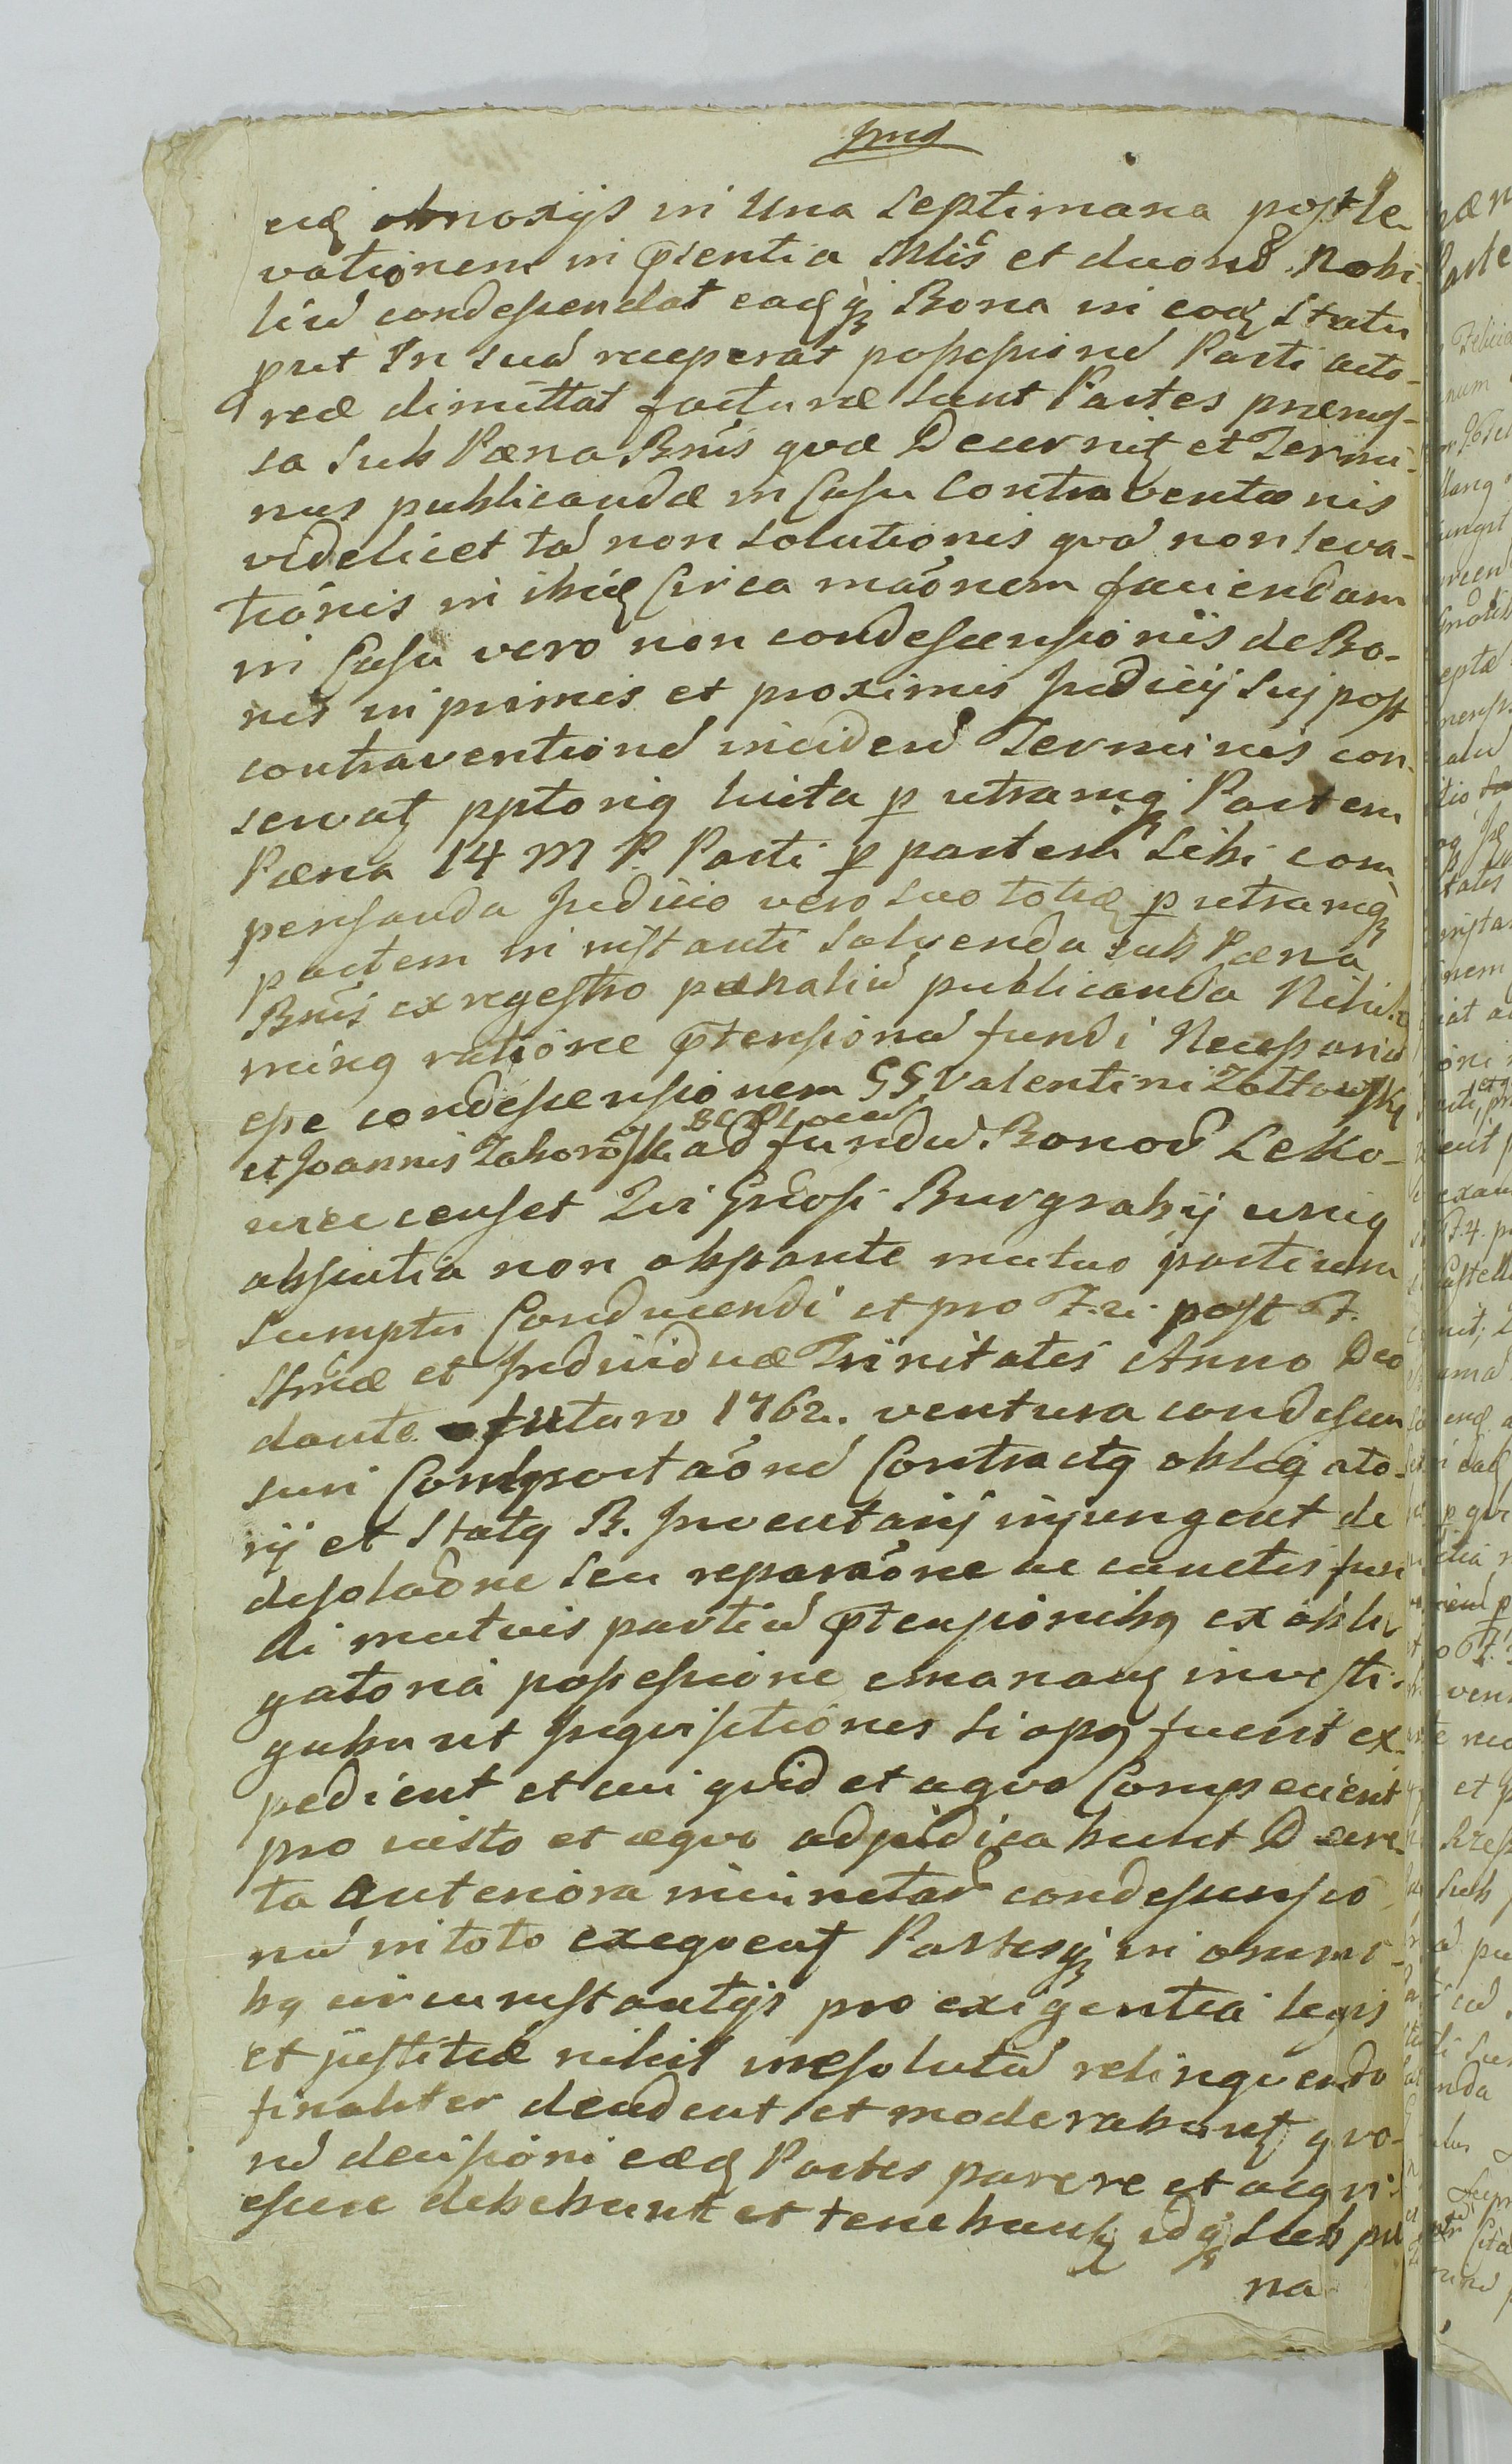 eiq obnoxijs in Una Septimana post le-
vationem in pſentia Mlis et duorud Nobi-
liud condescendat eadqɜ Bona in eodq Statu
prut In suad receperat possessioned Parti acto-
reæ dimittat facturæ sunt Partes præmiſ-
sa Sub Pæna Bnis qvæ Decernitq et Termi-
nus publicandæ in Casu Contraventionis
videlicet tad non solutionis qvad non leva-
tionis in ibidq Circa maonem faciendam
in Casu vero non condescensionis de Bo-
nis in primis et proximis Judicij Suj post
contraventioned incidend Terminis con-
servatq pptoriq luita p utramqɜ Partem
Pæna 14 M P. Parti p partem Sibi com-
pensanda Judicio vero suo totidq p utramqɜ
partem in instanti Solvenda sub Pæna
Bnis ex regestro pænaliud publicanda Nihilo
minq ratione ptensionud fundi Necessariad
esse condescensionem GG Valentini Zołtowskj
et Joannis Zaborowsk ad fundud Bonorud Leko-
wiec censet Qvi Gnosi Burgrabij uniq
absentia non obstante mutuo partium
Sumptu Conducendi et pro F. 2i. post F.
Smæ et Individuæ Trinitatis Anno Deo
dante futuro 1762. ventura condescen
suri Comportaoned Contractq obligato-
rij et Statq B. Inventarij injungent de
desolaone seu reparaone ac cunctis fun
di mutuis partiud ptensionibq ex obli
gatoria possessione emananq investi-
gabunt Inqvisitiones si opq fuerit ex-
pedient et cui qvid et a qvo Compecierit
pro iusto et æqvo adjudicabunt Decre-
ta anteriora inunctad condescensio
nud in toto exeqventq Partesqɜ in omni-
bq circumstantijs pro exigentia legis
et justitiæ nihil irresolutud relinqvendo
finaliter decident et moderabuntq qvo-
rud decisioni eædq Partes parere et acqvi-
escere debebunt et tenebuntq idqɜ Sub pæ
na